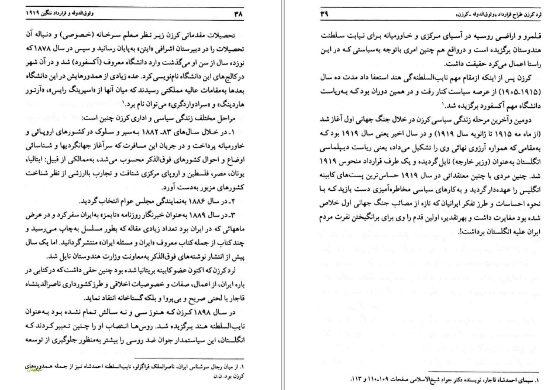 ۳۸ وثوق‌الدوله و قرارداد ننگین ۱۹۱۹
تحصیلات مقدماتی کرزن زیر نظر معلم سرخانه (خصوصی) و دنباله آن
تحصیلات را در دبیرستان اشرافی «ایتن» به‌پایان رسانید و سپس در سال ۱۸۷۸ که
نوزده سال از سن او می‌گذشت وارد دانشگاه معروف (آکسفورد) شد و در آن شهر
درکالج‌های این دانشگاه نام‌نویسی کرد. عده زیادی از همدوره‌هایش در این دانشگاه
بعدها به‌مقامات عالیه مملکتی رسیدند که میان آنها از «اسپرینگ رایس»، «آرتور
هاردینگ» و «سر ادواردگری» می‌توان نام برد.
مراحل مختلف زندگی سیاسی و اداری کرزن چنین است:
۱ـ در خلال سال‌های ۸۳ـ۱۸۸۲ به‌سیر و سلوک در کشورهای اروپائی و
خاورمیانه پرداخت و در جریان این مسافرت که سرآغاز جهانگردیها و شناسائی
اوضاع و احوال کشورهای فوق‌الذکر محسوب می‌شد، به‌ممالکی از قبیل: ایتالیا،
یونان، مصر، فلسطین و اروپای مرکزی شتافت و تجارب باارزشی از نظر شناخت
کشورهای مزبور به‌دست آورد.
۲ـ در سال ۱۸۸۶ به‌نمایندگی مجلس عوام انتخاب گردید.
۳ـ در سال ۱۸۸۹ به‌عنوان خبرنگار روزنامه «تایمز» به‌ایران سفر کرد و در عرض
ماههائی که در ایران بود تعداد زیادی مقاله که بطور مسلسل به‌چاپ می‌رسید و
چند کتاب از جمله کتاب معروف «ایران و مسئله ایران» منتشر گردانید. اما یک سال
پیش از انتشار نوشته‌های فوق‌الذکر به‌معاونت وزارت هندوستان نایل شد.
لرد کرزن که اکنون عضو کابینه بریتانیا شده بود چنین حقی داشت که در کتابی در
باره ایران، از اعمال، صفات و خصوصیات اخلاقی و طرز کشورداری ناصرالدینشاه
قاجار با لحنی صریح و بی‌پروا و بلکه گستاخانه انتقاد نماید.
در سال ۱۸۹۸ کرزن که هنوز سی و نه سالش تمام نشده بود به‌عنوان
نایب‌السلطنه هند برگزیده شد. روس‌ها انتصاب او را چنین تعبیر کردند که
انگلستان، این سیاستمدار جوان ضد روسی را بیشتر به‌منظور جلوگیری از توسعه
۱. از میان رجال سرشناس ایران، ناصرالملک قراگزلو، نایب‌السلطنه احمدشاه نیز از جمله همدوره‌های
کرزن بود. ن.ن
لرد کرزن طراح قرارداد «وثوق‌الدوله ـ کرزن» ۳۹
قلمرو و اراضی روسیه در آسیای مرکزی و خاورمیانه برای نیابت سلطنت
هندوستان برگزیده است و درواقع هم چنین امری باتوجه به‌سیاستی که در این
راستا اعمال می‌کرد حقیقت داشت.
کرزن پس از اینکه از مقام مهم نایب‌السلطنه‌گی هند استعفا داد مدت ده سال
(۱۹۱۵ـ۱۹۰۵) از عرصه سیاست کنار رفت و در همین دوران بود که به‌ریاست
دانشگاه مهم آکسفورد برگزیده شد.
دومین و آخرین مرحله زندگی سیاسی کرزن در خلال جنگ جهانی اول آغاز شد
(از ماه مه ۱۹۱۵ تا ژانویه سال ۱۹۱۹) و در سال اخیر یعنی سال ۱۹۱۹ بود
به‌مقامی که همواره آرزوی نهائی وی را تشکیل می‌داد، یعنی ریاست دیپلماسی
انگلستان به‌عنوان (وزیر خارجه) نایل گردیده و یک طرف قرارداد منحوس ۱۹۱۹
باشد. چنین مردی با چنین معتقداتی در سال ۱۹۱۹ حساس‌ترین پست‌های کابینه
انگلیس را عهده‌دار گردید و به‌کارهای سیاسی مخاطره‌آمیزی دست یازید که با
نحوه احساسات و طرز تفکر ایرانیان که تازه از مصائب جنگ جهانی اول خلاص
شده بود مغایرت داشت و بهرتقدیر، اولین قدم را وی برای برانگیختن نفرت مردم
ایران علیه انگلستان برداشت!.
۱. سیمای احمدشاه قاجار، نویسنده دکتر جواد شیخ‌الاسلامی صفحات ۱۰۹، ۱۱۰ و ۱۱۳.